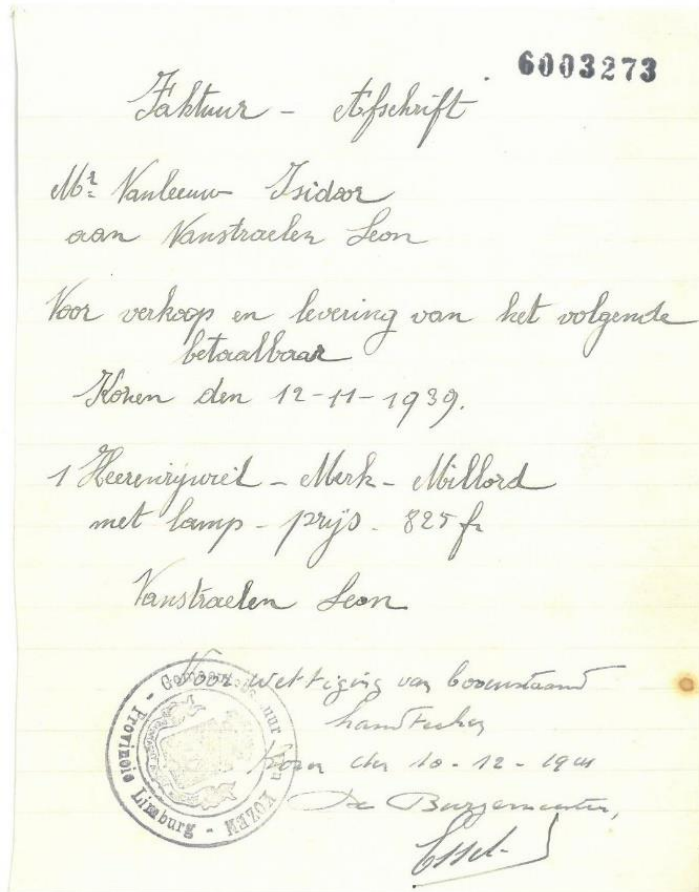 6003273
Faktuur - Afschrift
Mr. Vanleeuw Isidoor
aan Vanstraelen Leon
Voor verkoop en levering van het volgende
betaalbaar
Kozen den 12-11-1939.
1 Heerenrijwiel - Merk - Millord
met lamp - prijs - 825 fr
Vanstraelen Leon
Voor wettiging van bovenstaand
handteken
Kozen den 10-12-1941
De Burgemeester,
Gemeentebestuur van KOZEN
- Provincie Limburg -